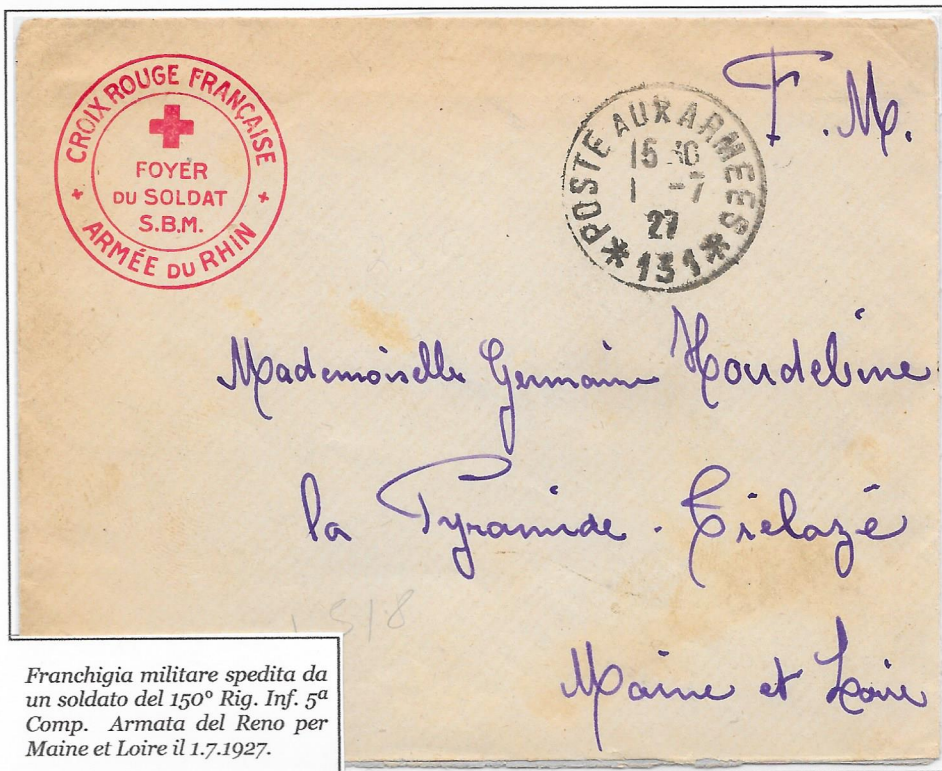 F. M.
CROIX ROUGE FRANÇAISE
FOYER
DU SOLDAT
S.B.M.
ARMÉE DU RHIN
POSTE AUX ARMEES
15 30
1 -7
27
* 131 *
Mademoiselle Germaine Houdebine
la Pyramide - Trélazé
Maine et Loire
1518
Franchigia militare spedita da
un soldato del 150° Rig. Inf. 5ª
Comp. Armata del Reno per
Maine et Loire il 1.7.1927.